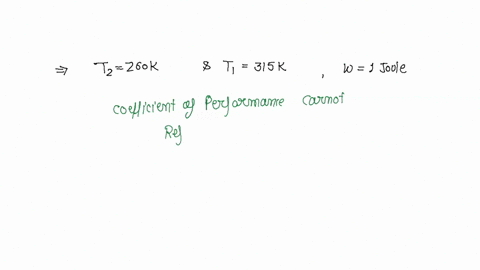 ⇒ T₂ = 260K & T₁ = 315K , W = 1 Joule
coefficient of Performance carnot
Ref